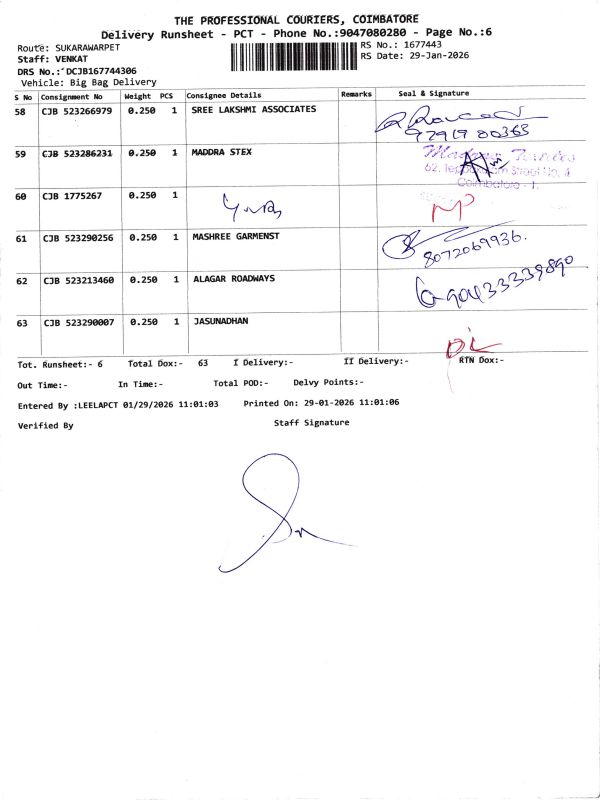 THE PROFESSIONAL COURIERS, COIMBATORE
Delivery Runsheet - PCT - Phone No.:9047080280 - Page No.:6
Route: SUKARAWARPET
RS No.: 1677443
Staff: VENKAT
RS Date: 29-Jan-2026
DRS No.: DCJB167744306
Vehicle: Big Bag Delivery
S No Consignment No Weight PCS Consignee Details Remarks Seal & Signature
58 CJB 523266979 0.250 1 SREE LAKSHMI ASSOCIATES
97917 00365
59 CJB 523286231 0.250 1 MADDRA STEX
62, Street No. 4
Coimbatore - 1.
60 CJB 1775267 0.250 1
61 CJB 523290256 0.250 1 MASHREE GARMENST
8072069936.
62 CJB 523213460 0.250 1 ALAGAR ROADWAYS
63 CJB 523290007 0.250 1 JASUNADHAN
Tot. Runsheet:- 6 Total Dox:- 63 I Delivery:- II Delivery:- RTN Dox:-
Out Time:- In Time:- Total POD:- Delvy Points:-
Entered By :LEELAPCT 01/29/2026 11:01:03 Printed On: 29-01-2026 11:01:06
Verified By Staff Signature